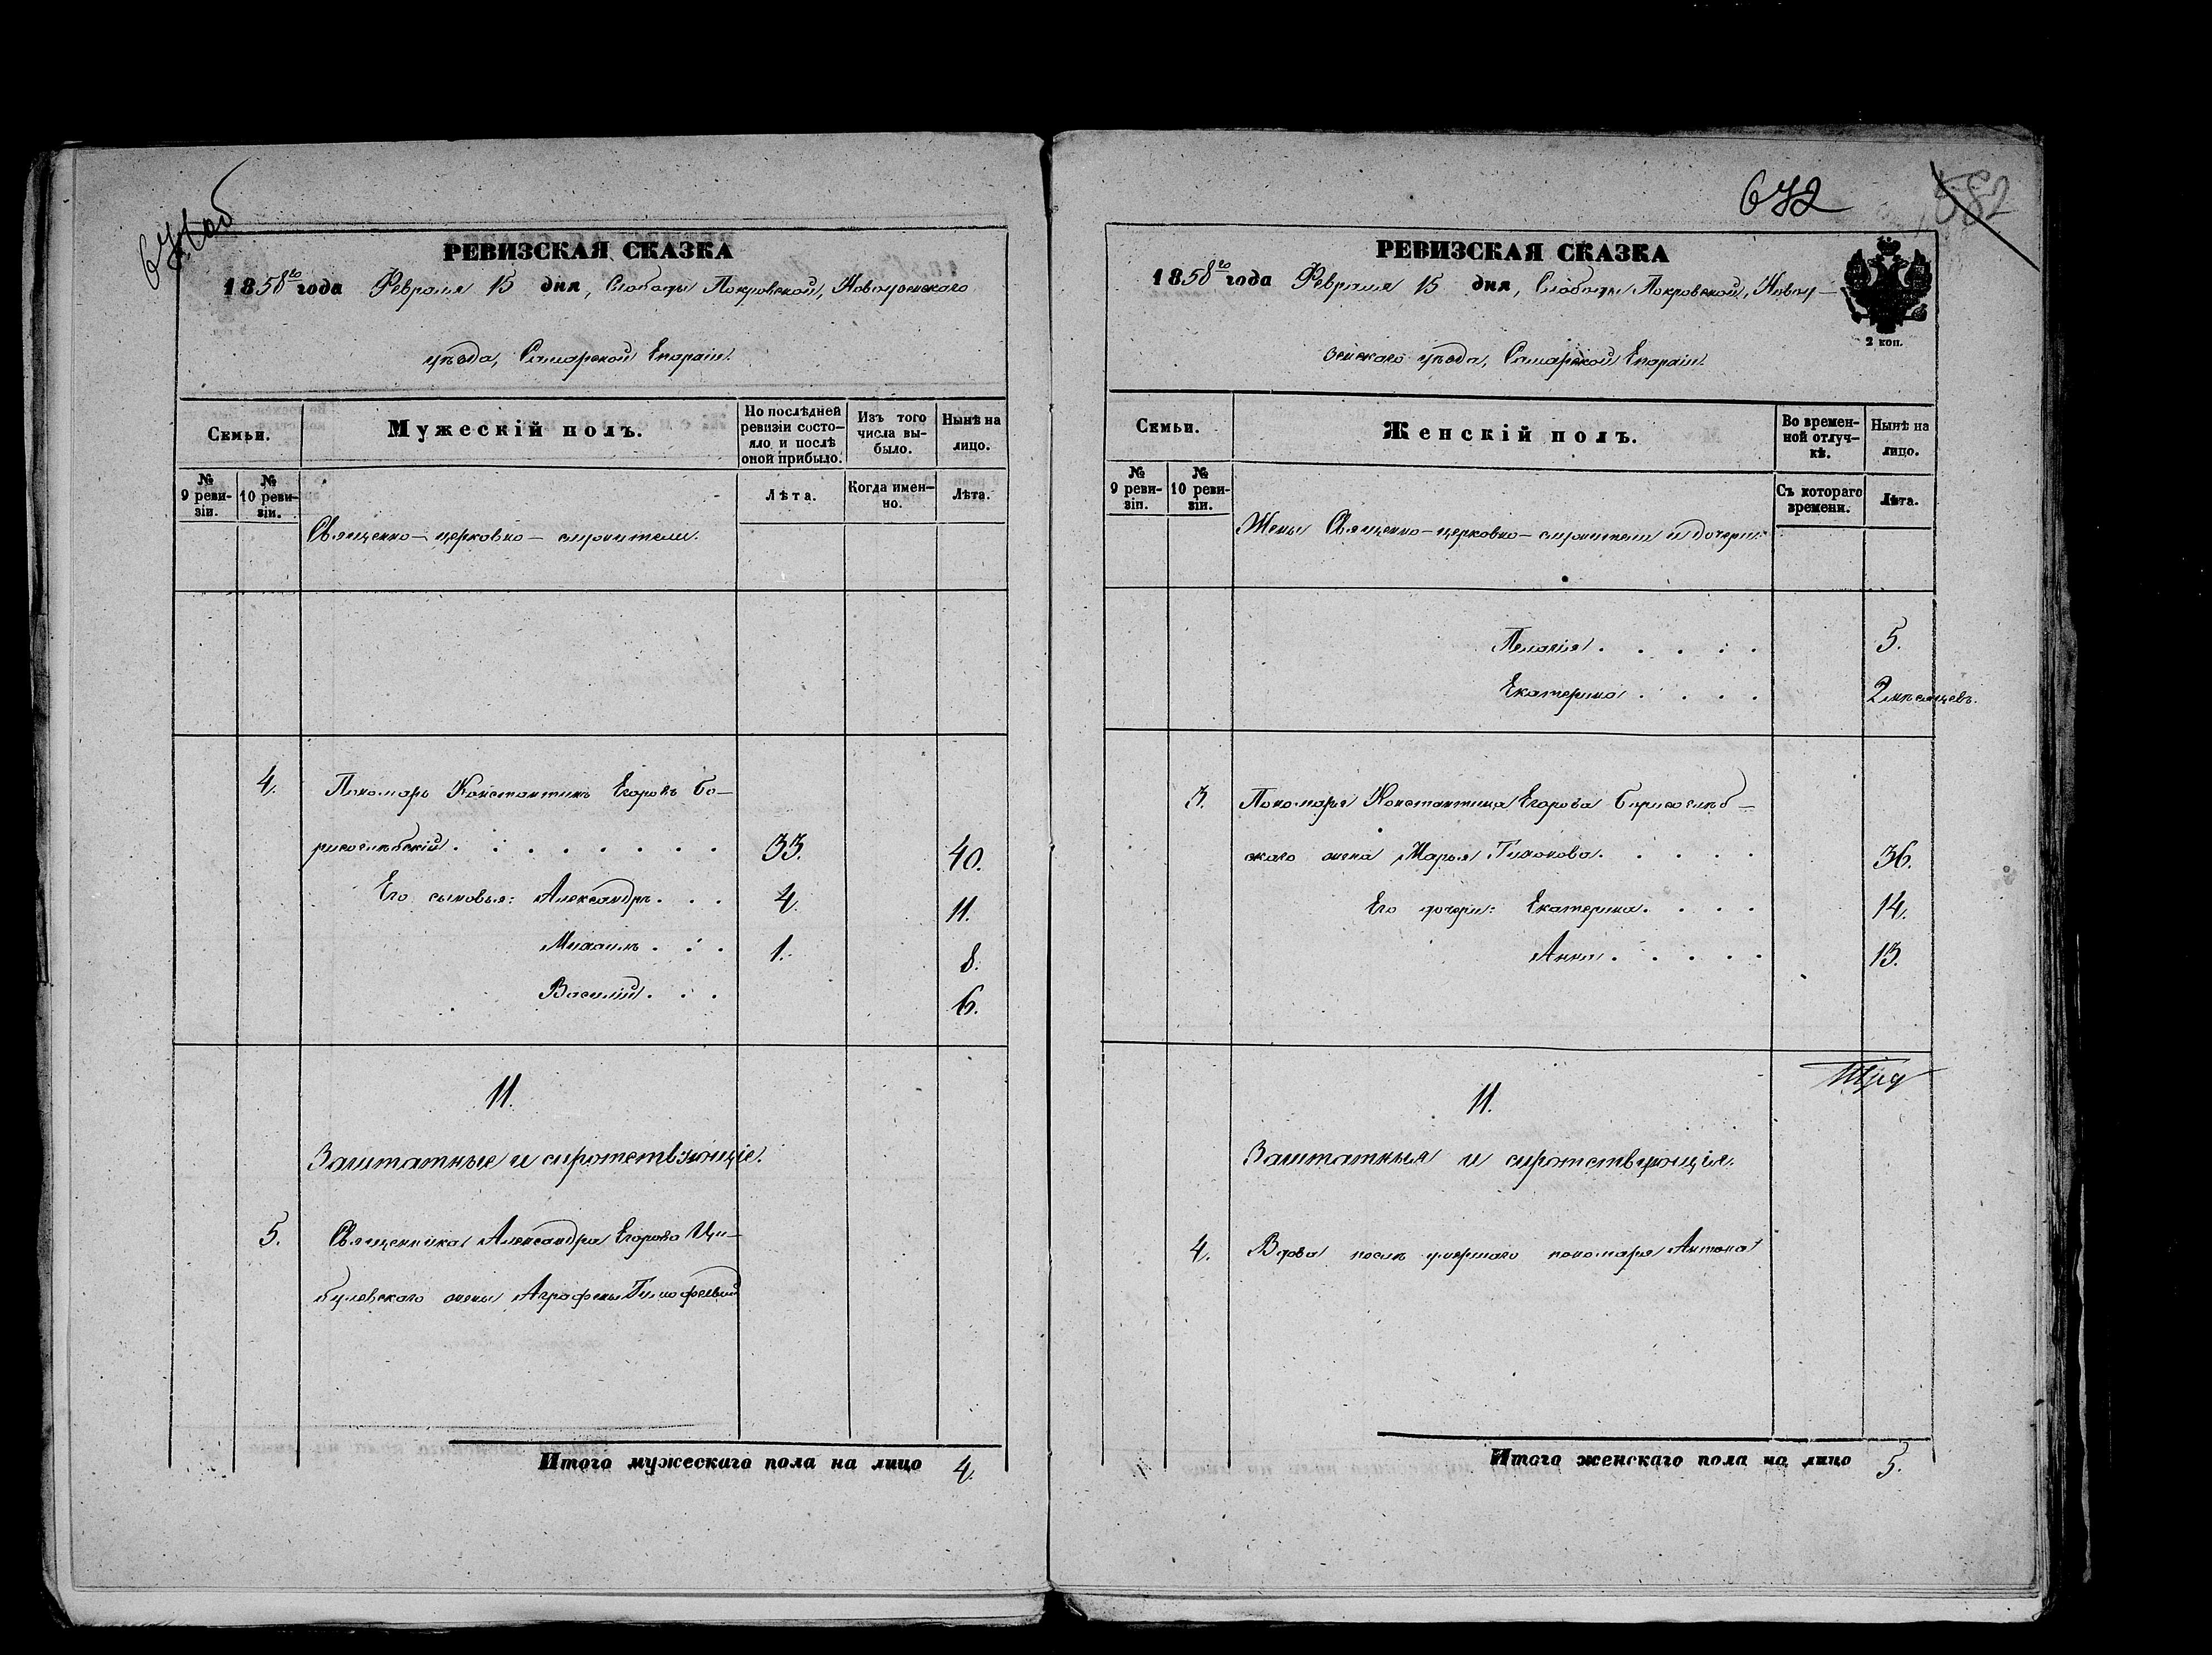 671 об
РЕВИЗСКАЯ СКАЗКА
1858го года Февраля 15 дня, Слободы Покровской, Новоузенскаго
уѣзда, Самарской Епархіи.
Семьи.
Мужескій полъ.
По послѣдней ревизіи состо-
яло и послѣ
оной прибыло.
Изъ того
числа вы-
было.
Нынѣ на
лицо.
№
9 реви-
зіи.
№
10 реви-
зіи.
Лѣта.
Когда имен-
но.
Лѣта.
Священно-церковно-служители.
4. Пономарь Константинъ Егоровъ Бо-
рисоглѣбскій. 33. 40.
Его сыновья: Александръ. 4. 11.
Михаилъ. 1. 8.
Василій. 6.
11.
Заштатные и сиротствующіе.
5. Священника Александра Егорова Ци-
булевскаго жены Аграфены Тимофеевой
Итого мужескаго пола на лицо 4.
672
582
РЕВИЗСКАЯ СКАЗКА
1858го года Февраля 15 дня, Слободы Покровской, Новоу-
зенскаго уѣзда, Самарской Епархіи.
2 коп.
Семьи.
Женскій полъ.
Во времен-
ной отлуч-
кѣ.
Нынѣ на
лицо.
№
9 реви-
зіи.
№
10 реви-
зіи.
Съ котораго
времени.
Лѣта.
Жены Священно-церковно-служителей и дочери.
Пелагія. 5.
Екатерина. 2 мѣсяцевъ.
3. Пономаря Константина Егорова Борисоглѣб-
скаго жена Марья Тихонова. 36.
Его дочери: Екатерина. 14.
Анна. 13.
11.
Заштатныя и сиротствующія.
4. Вдова послѣ умершаго пономаря Антона
Итого женскаго пола на лицо 5.